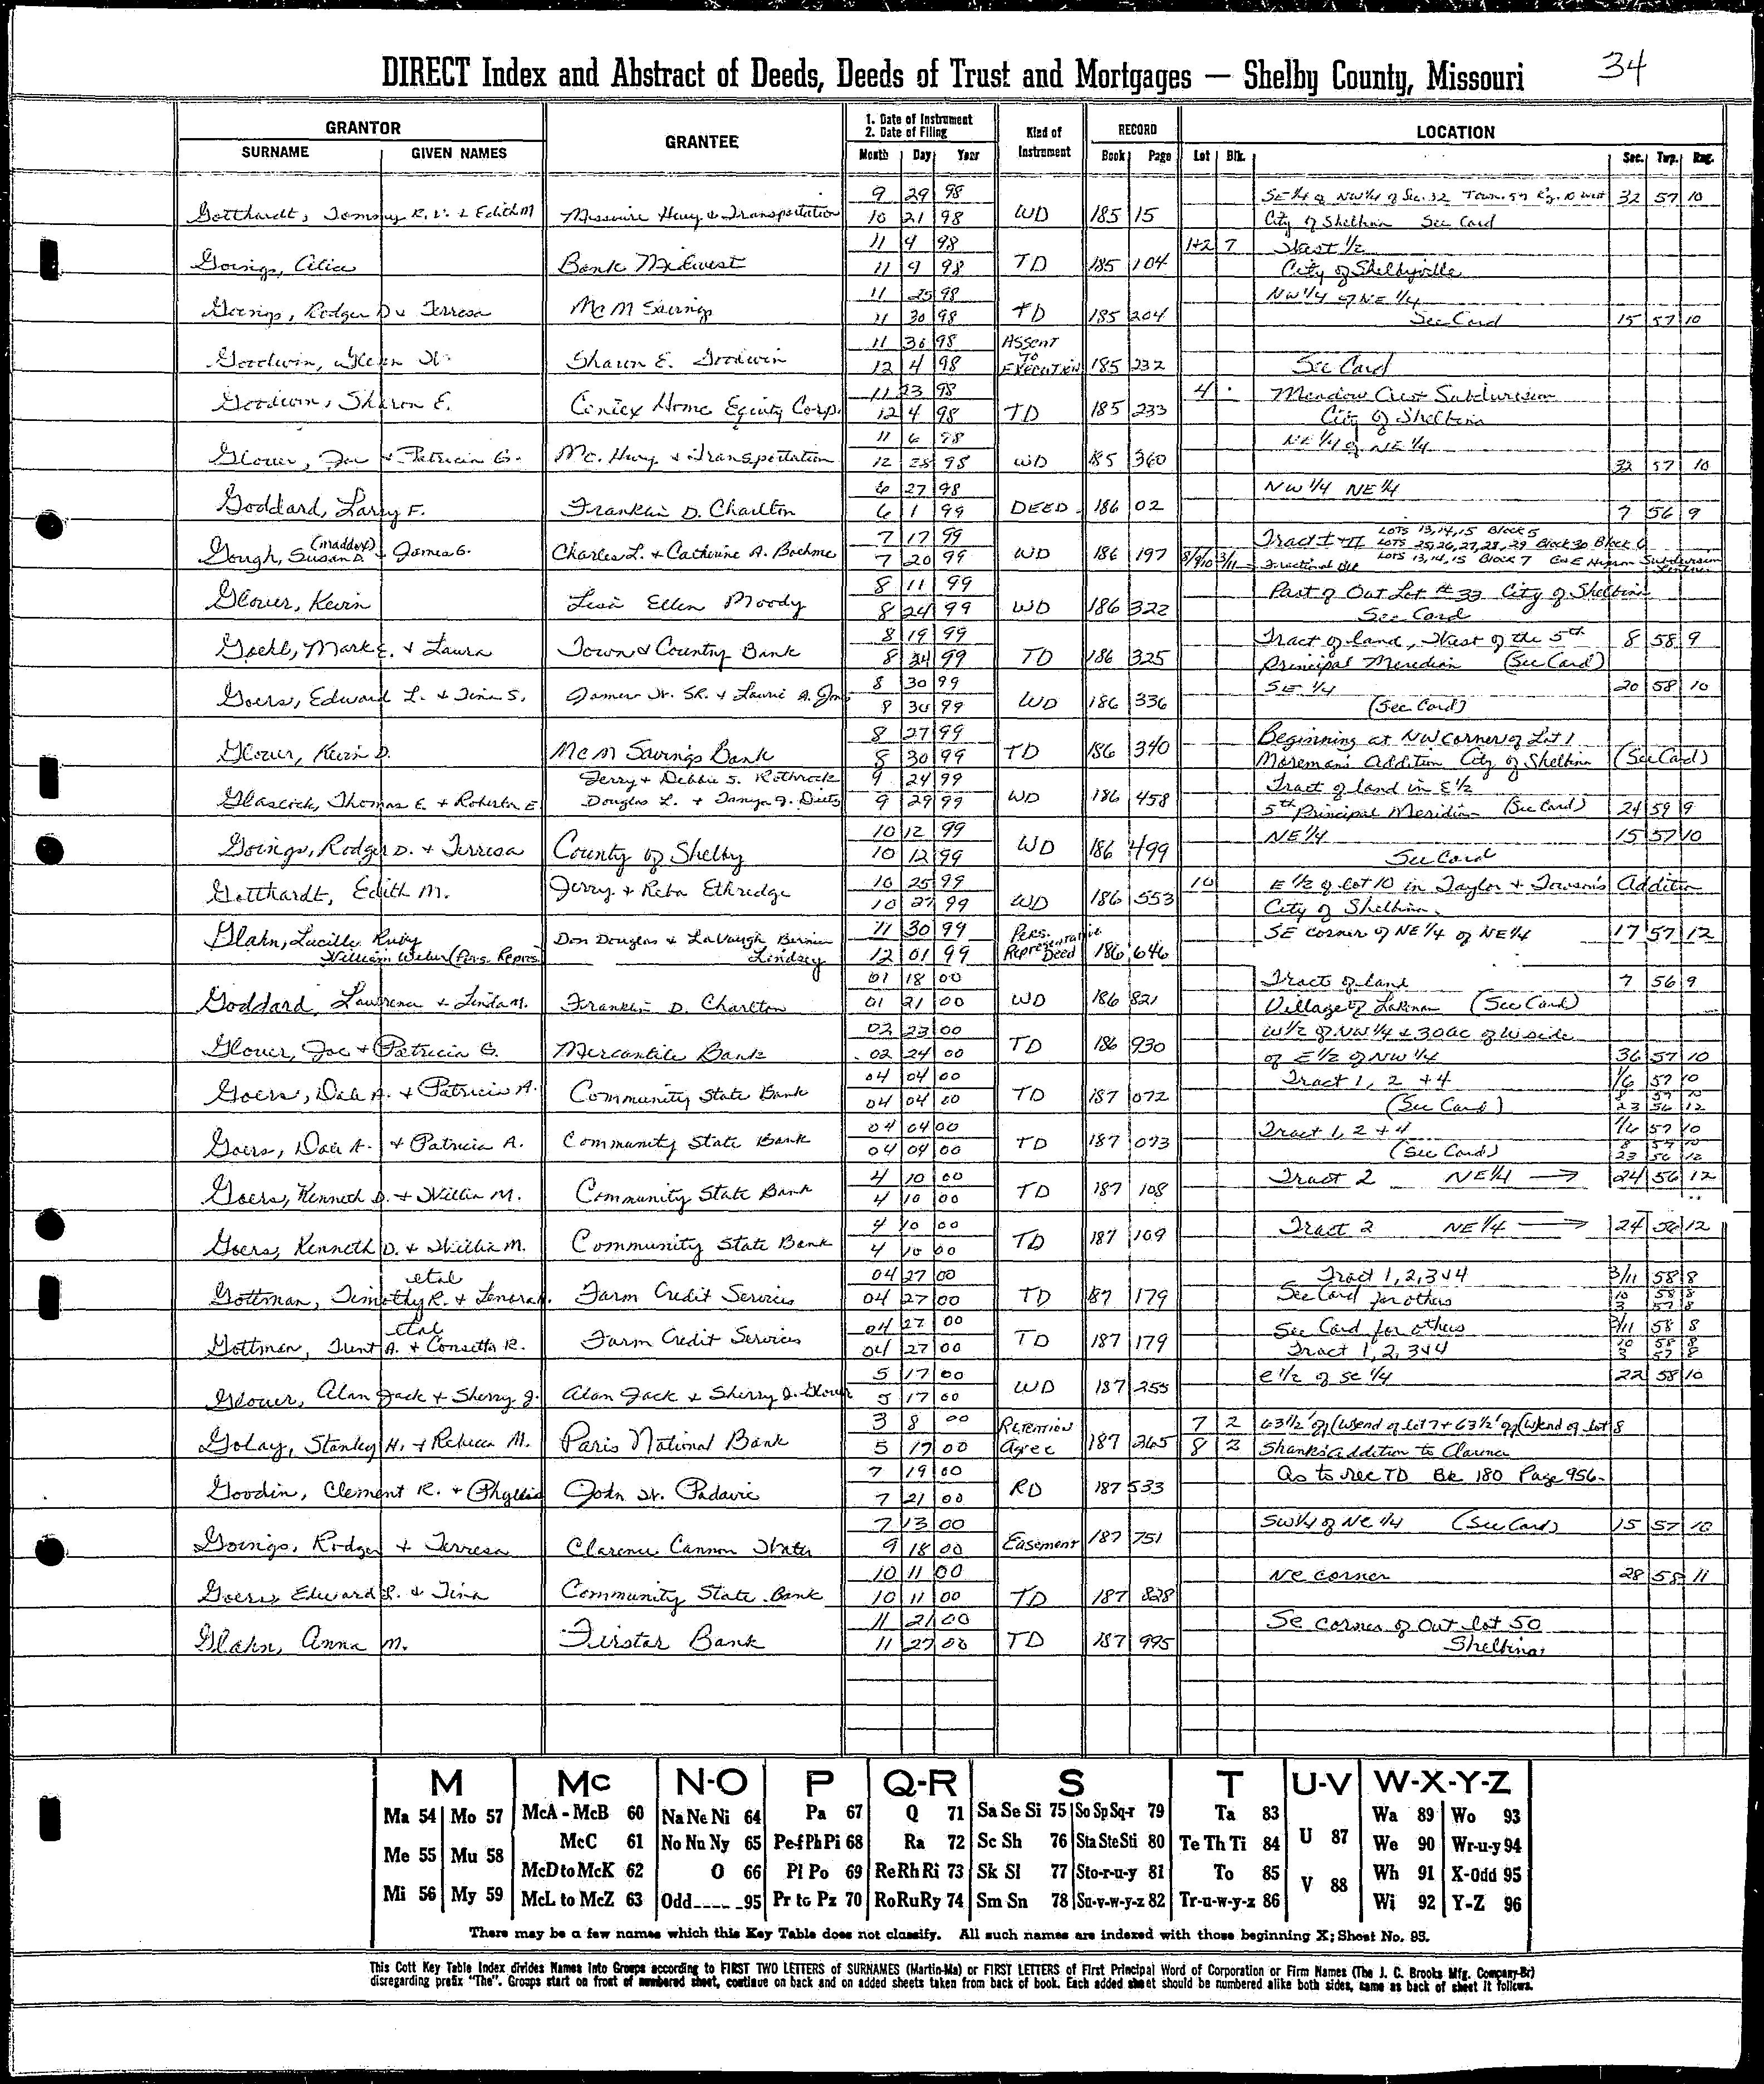 34
DIRECT Index and Abstract of Deeds, Deeds of Trust and Mortgages — Shelby County, Missouri
GRANTOR GRANTEE 1. Date of Instrument 2. Date of Filing Kind of Instrument RECORD LOCATION
SURNAME GIVEN NAMES Month Day Year Book Page Lot Blk. Sec. Twp. Rng.
9 29 98 SE 1/4 of NW 1/4 of Sec. 32 Town. 57 Rg. 10 West 32 57 10
Gotthardt, Tommy R. & Edith M Hwy & Transportation 10 21 98 WD 185 15 City of Shelbina See Card
11 4 98 1+2 7 West 1/2
Goings, Bank Midwest 11 9 98 TD 185 104 City of Shelbyville
11 25 98 NW 1/4 of NE 1/4
Goings, Rodger D & Terresa McM Savings 11 30 98 TD 185 204 See Card 15 57 10
11 30 98 Assent
Goodwin, Glenn Sharon E. Goodwin 12 4 98 To Execution 185 232 See Card
11 23 98 4 Meadow Crest Subdivision
Goodwin, Sharon E. Home Equity Corp. 12 4 98 TD 185 233 City of Shelbina
11 6 98 NE 1/4 of NE 1/4
Glover, Joe & Patricia G. Mo. Hwy & Transportation 12 28 98 WD 185 360 32 57 10
6 27 98 NW 1/4 NE 1/4
Goddard, Larry F. Franklin D. Charlton 6 1 99 DEED 186 02 7 56 9
7 17 99 Tract I & II Lots 13,14,15 Block 5
Gough, Susan D. (Maddox) & James G. Charles L. & Catherine A. Boehme 7 20 99 WD 186 197 8/9/10 3/11 Fractional Blk Lots 25,26,27,28,29 Block 30 Block 6
Lots 13,14,15 Block 7
8 11 99 Part of Out Lot # 33 City of Shelbina
Glover, Kevin Lisa Ellen Moody 8 24 99 WD 186 322 See Card
8 19 99 Tract of land, West of the 5th 8 58 9
Goehl, Mark E. & Laura Town & Country Bank 8 24 99 TD 186 325 Principal Meridian (See Card)
8 30 99 SE 1/4 20 58 10
Goers, Edward L. & Tina S. James W. SR. & Laurie A. 8 30 99 WD 186 336 (See Card)
8 27 99 Beginning at NW corner of Lot 1
Glover, Kevin D. McM Savings Bank 8 30 99 TD 186 340 Addition City of Shelbina (See Card)
Jerry & Debbie S. Rothrock 9 24 99 Tract of land in E 1/2
Glascock, Thomas E. & Roberta E Douglas L. & Tanya J. 9 29 99 WD 186 458 5th Principal Meridian (See Card) 24 59 9
10 12 99 NE 1/4 15 57 10
Goings, Rodger D. & Terresa County of Shelby 10 12 99 WD 186 499 See Card
10 25 99 10 E 1/2 of Lot 10 in Taylor & Towson's Addition
Gotthardt, Edith M. Jerry & Reba Ethredge 10 27 99 WD 186 553 City of Shelbina
Glahn, Lucille Ruby Don Douglas & LaVaugh 11 30 99 Pers. SE corner of NE 1/4 of NE 1/4 17 57 12
William Weber (Pers. Repres. Lindsey 12 01 99 Representative Deed 186 646
01 18 00 Tract of land 7 56 9
Goddard, Lawrence & Linda M. Franklin D. Charlton 01 21 00 WD 186 821 Village of Lakenan (See Card)
02 23 00 W 1/2 of NW 1/4 & 30 ac of W side
Glover, Joe & Patricia G. Mercantile Bank 02 24 00 TD 186 930 of E 1/2 of NW 1/4 36 57 10
04 04 00 Tract 1, 2 + 4 1/6 57 10
Goers, Dale A. & Patricia A. Community State Bank 04 04 00 TD 187 072 (See Card) 8 57 10
23 56 12
04 04 00 Tract 1, 2 + 4 1/6 57 10
Goers, Dale A. & Patricia A. Community State Bank 04 04 00 TD 187 073 (See Card) 8 57 10
23 56 12
4 10 00 Tract 2 NE 1/4 → 24 56 12
Goers, Kenneth D. & Willia M. Community State Bank 4 10 00 TD 187 108
4 10 00 Tract 2 NE 1/4 → 24 56 12
Goers, Kenneth D. & Willia M. Community State Bank 4 10 00 TD 187 109
etal 04 27 00 Tract 1, 2, 3 & 4 3/11 58 8
Gottman, Timothy R. & Lenora Farm Credit Services 04 27 00 TD 87 179 See Card for others 10 58 8
3 57 8
etal 04 27 00 See Card for others 3/11 58 8
Gottman, Trent A. & Consetta R. Farm Credit Services 04 27 00 TD 187 179 Tract 1, 2, 3 & 4 10 58 8
3 57 8
5 17 00 E 1/2 of SE 1/4 22 58 10
Glover, Alan Jack & Sherry J. Alan Jack & Sherry J. Glover 5 17 00 WD 187 255
3 8 00 7 2 63 1/2' off W end of Lot 7 + 63 1/2' off W end of Lot 8
Golay, Stanley H. & Rebecca M. Paris National Bank 5 17 00 Agree 187 265 8 2 Shanks Addition to Clarence
7 19 00 As to rec TD Bk 180 Page 956
Goodin, Clement R. & Phyllis John W. Padavic 7 21 00 RD 187 533
7 13 00 SW 1/4 of NE 1/4 (See Card) 15 57 10
Goings, Rodger & Terresa Clarence Cannon Water 9 18 00 Easement 187 751
10 11 00 NE corner 28 58 11
Goers, Edward L. & Tina Community State Bank 10 11 00 TD 187 828
11 21 00 SE corner of Out Lot 50
Glahn, Anna M. Firstar Bank 11 27 00 TD 187 995 Shelbina
M Mc N-O P Q-R S T U-V W-X-Y-Z
Ma 54 Mo 57 McA - McB 60 Na Ne Ni 64 Pa 67 Q 71 Sa Se Si 75 So Sp Sq-r 79 Ta 83 U 87 Wa 89 Wo 93
Me 55 Mu 58 McC 61 No Nu Ny 65 Pe-f Ph Pi 68 Ra 72 Sc Sh 76 Sta Ste Sti 80 Te Th Ti 84 V 88 We 90 Wr-u-y 94
Mi 56 My 59 McD to McK 62 O 66 Pl Po 69 Re Rh Ri 73 Sk Sl 77 Sto-r-u-y 81 To 85 Wh 91 X-Odd 95
McL to McZ 63 Odd 95 Pr to Pz 70 Ro Ru Ry 74 Sm Sn 78 Su-v-w-y-z 82 Tr-u-w-y-z 86 Wi 92 Y-Z 96
There may be a few names which this Key Table does not classify. All such names are indexed with those beginning X; Sheet No. 95.
This Cott Key Table Index divides Names Into Groups according to FIRST TWO LETTERS of SURNAMES (Martin-Ma) or FIRST LETTERS of First Principal Word of Corporation or Firm Names (The J. C. Brooks Mfg. Company-Br)
disregarding prefix "The". Groups start on front of numbered sheet, continue on back and on added sheets taken from back of book. Each added sheet should be numbered alike both sides, same as back of sheet it follows.